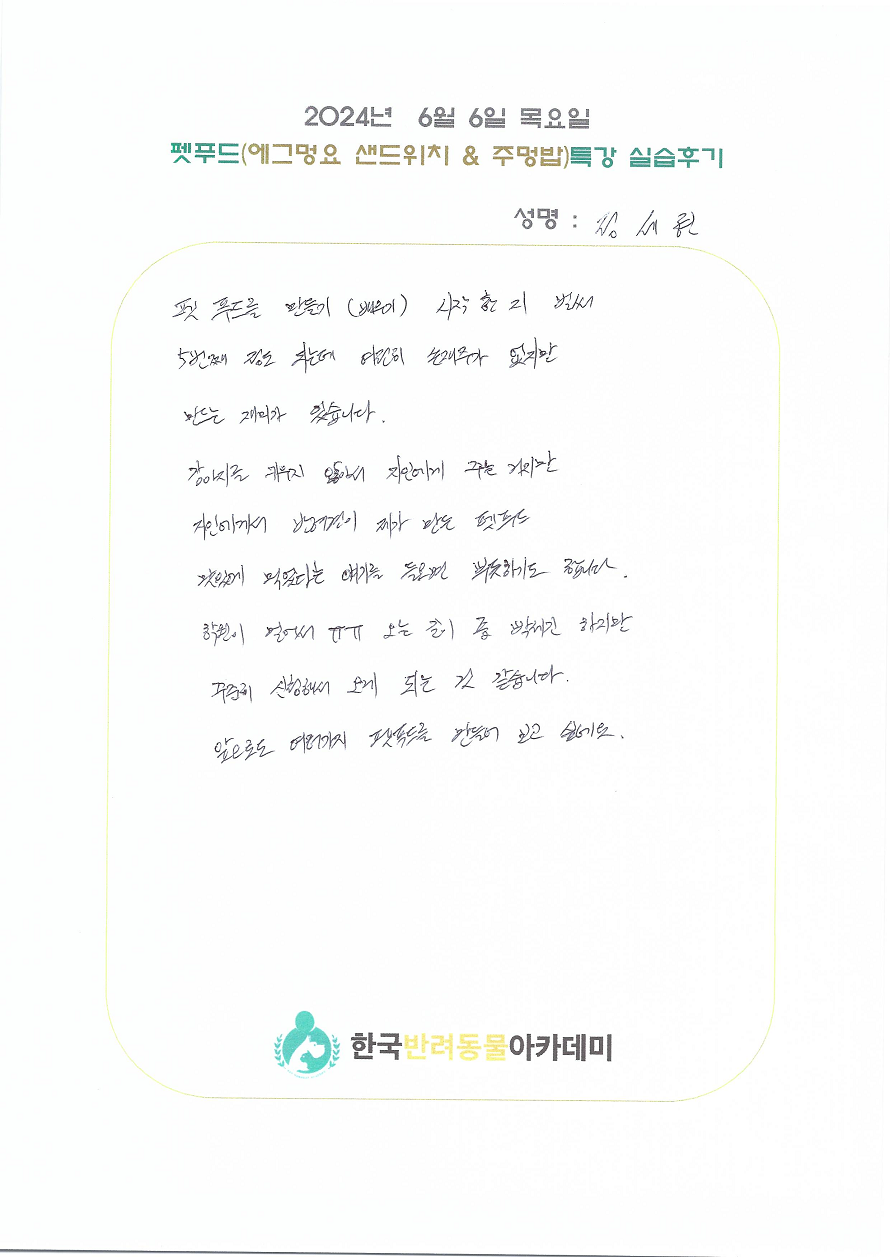 2024년 6월 6일 목요일
펫푸드(에그멍요 샌드위치 & 주멍밥)특강 실습후기
성명 : 김 세 원
펫 푸드를 만들기 (배우기) 시작 한 지 벌써
5번째 정도 되는데 여전히 손재주가 없지만
만드는 재미가 있습니다.
강아지를 키우지 않아서 지인에게 주는 거지만
지인에게서 반려견이 제가 만든 펫푸드
맛있게 먹었다는 얘기를 들으면 뿌듯하기도 합니다.
학원이 멀어서 ㅠㅠ 오는 길이 좀 빡세긴 하지만
꾸준히 신청해서 오게 되는 것 같습니다.
앞으로도 여러가지 펫푸드를 만들어 보고 싶네요.
한국반려동물아카데미